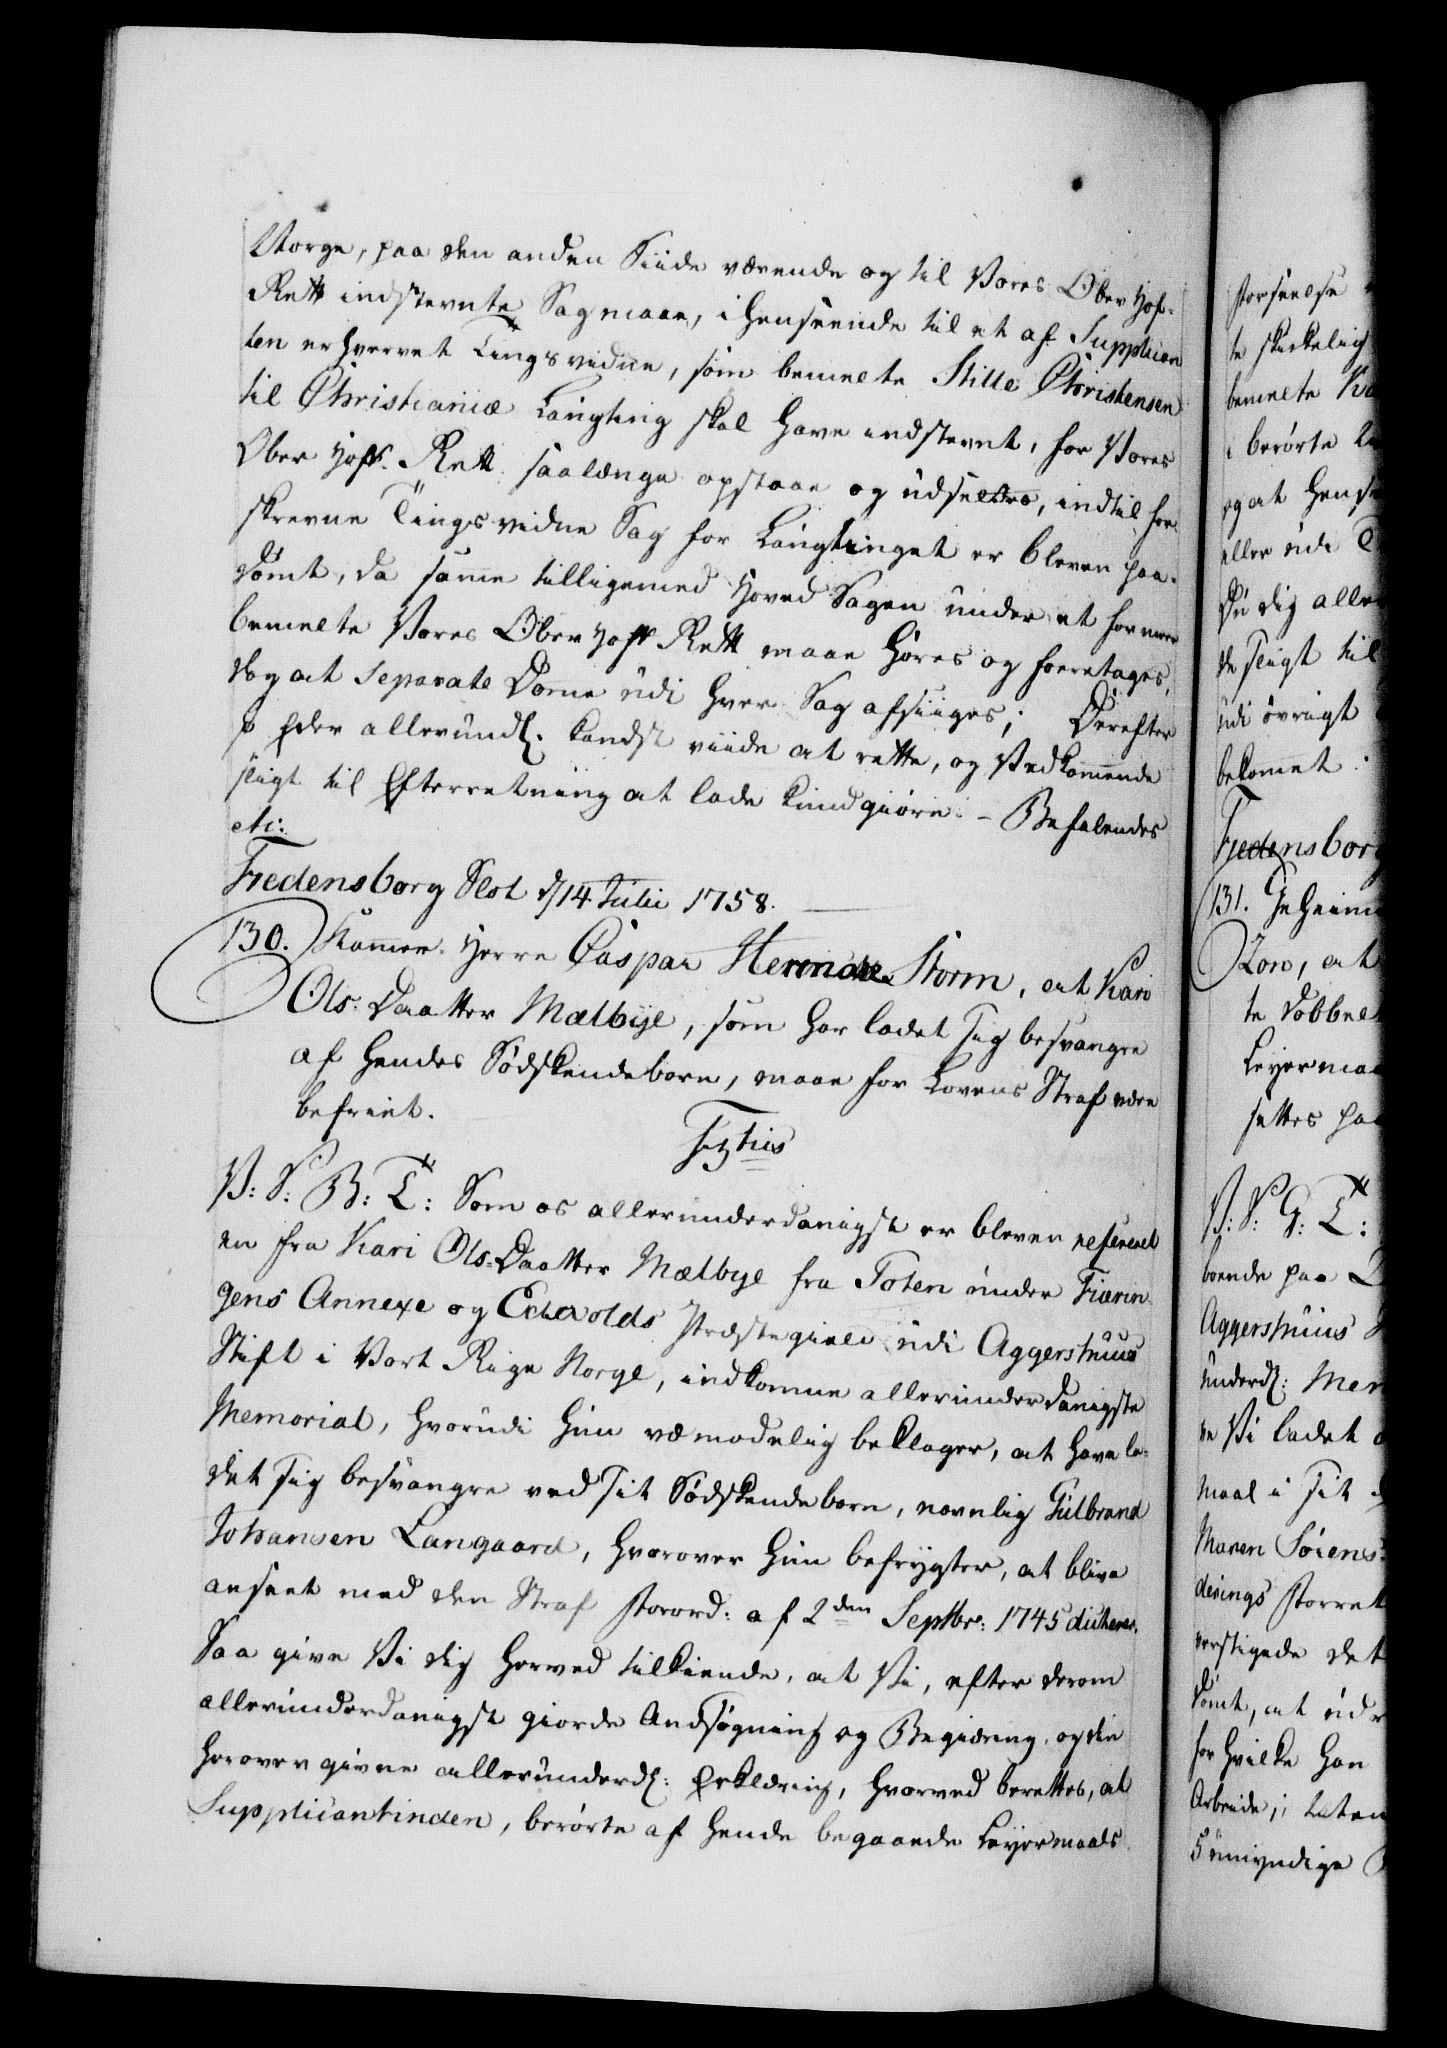 Norge, paa den anden Siide værende og til Vores Ober Hof-
Rett indstevnte Sag maae, i henseende til et af Supplican
ten erhvervet Tingsvidne, som bemelte Stille Christensen
til Christianiæ Laugting skal have indstevnt, for Vores
Ober Hoff-Rett saalænge opstaae og udsettes, indtil for-
skrevne Tingsvidne Sag for Laugtinget er bleven paa-
dömt, da samme tilligemed Hoved Sagen under et for meer
bemelte Vores Ober Hoff Rett maae höres og foretages,
dog at separate Domme udi hver Sag afsiiges; Derefter
I Eder allerundl. kand viide at rette, og Vedkommende
sligt til Efterretning at lade kundgiöre. - Befalendes
etc:
Fredensborg Slot d/14 Julii 1758.
130. Kammer-Herre Caspar Herman Storm, at Kari
Ols-Daatter Mælbye, som har ladet sig besvangre
af hendes Södskendebarn, maae for Lovens Straf være
befriet.
F: 5tus
V: S: B: T: Som os allerunderdanigst er bleven refereret
en fra Kari Ols-Daatter Mælbye fra Toten under Fiærin
gens Annexe og Ecdvolds Præstegield udi Aggershuus
Stift i Vort Rige Norge, indkommen allerunderdanigste
Memorial, hvorudi hun vemodelig beklager, at have la-
det sig besvangre ved sit Södskendebarn, navnlig Gulbrand
Johansen Langaard, hvorover hun befrygter, at blive
anseet med den Straf Forord: af 2den Septbr: 1745 dicterer.
Saa give Vi dig herved tilkiende, at Vi, efter derom
allerunderdanigst giorde Ansögning og Begiæring, og din
herover givne allerunderdl: Erklæring, hvorved berettes, at
Supplicantinden, berörte af hende begaaede Leyermaals
Forseelse
te skikkelig
bemelte
i berörte
og at hens
eller udi
Du dig alle
de sligt til
udi övrigt
bekommet
Fredensborg
131. Geheime
Zon, at
te dobbel
Leyermaa
settes paa
V: S: G: T:
boende paa
Aggershuus
underdl: Mem
ve Vi ladet
maal i sit
Maren Sörens
disings Forret
verstigede det
dömt, at ud
for hvilke han
Arbeide,
5 umyndige